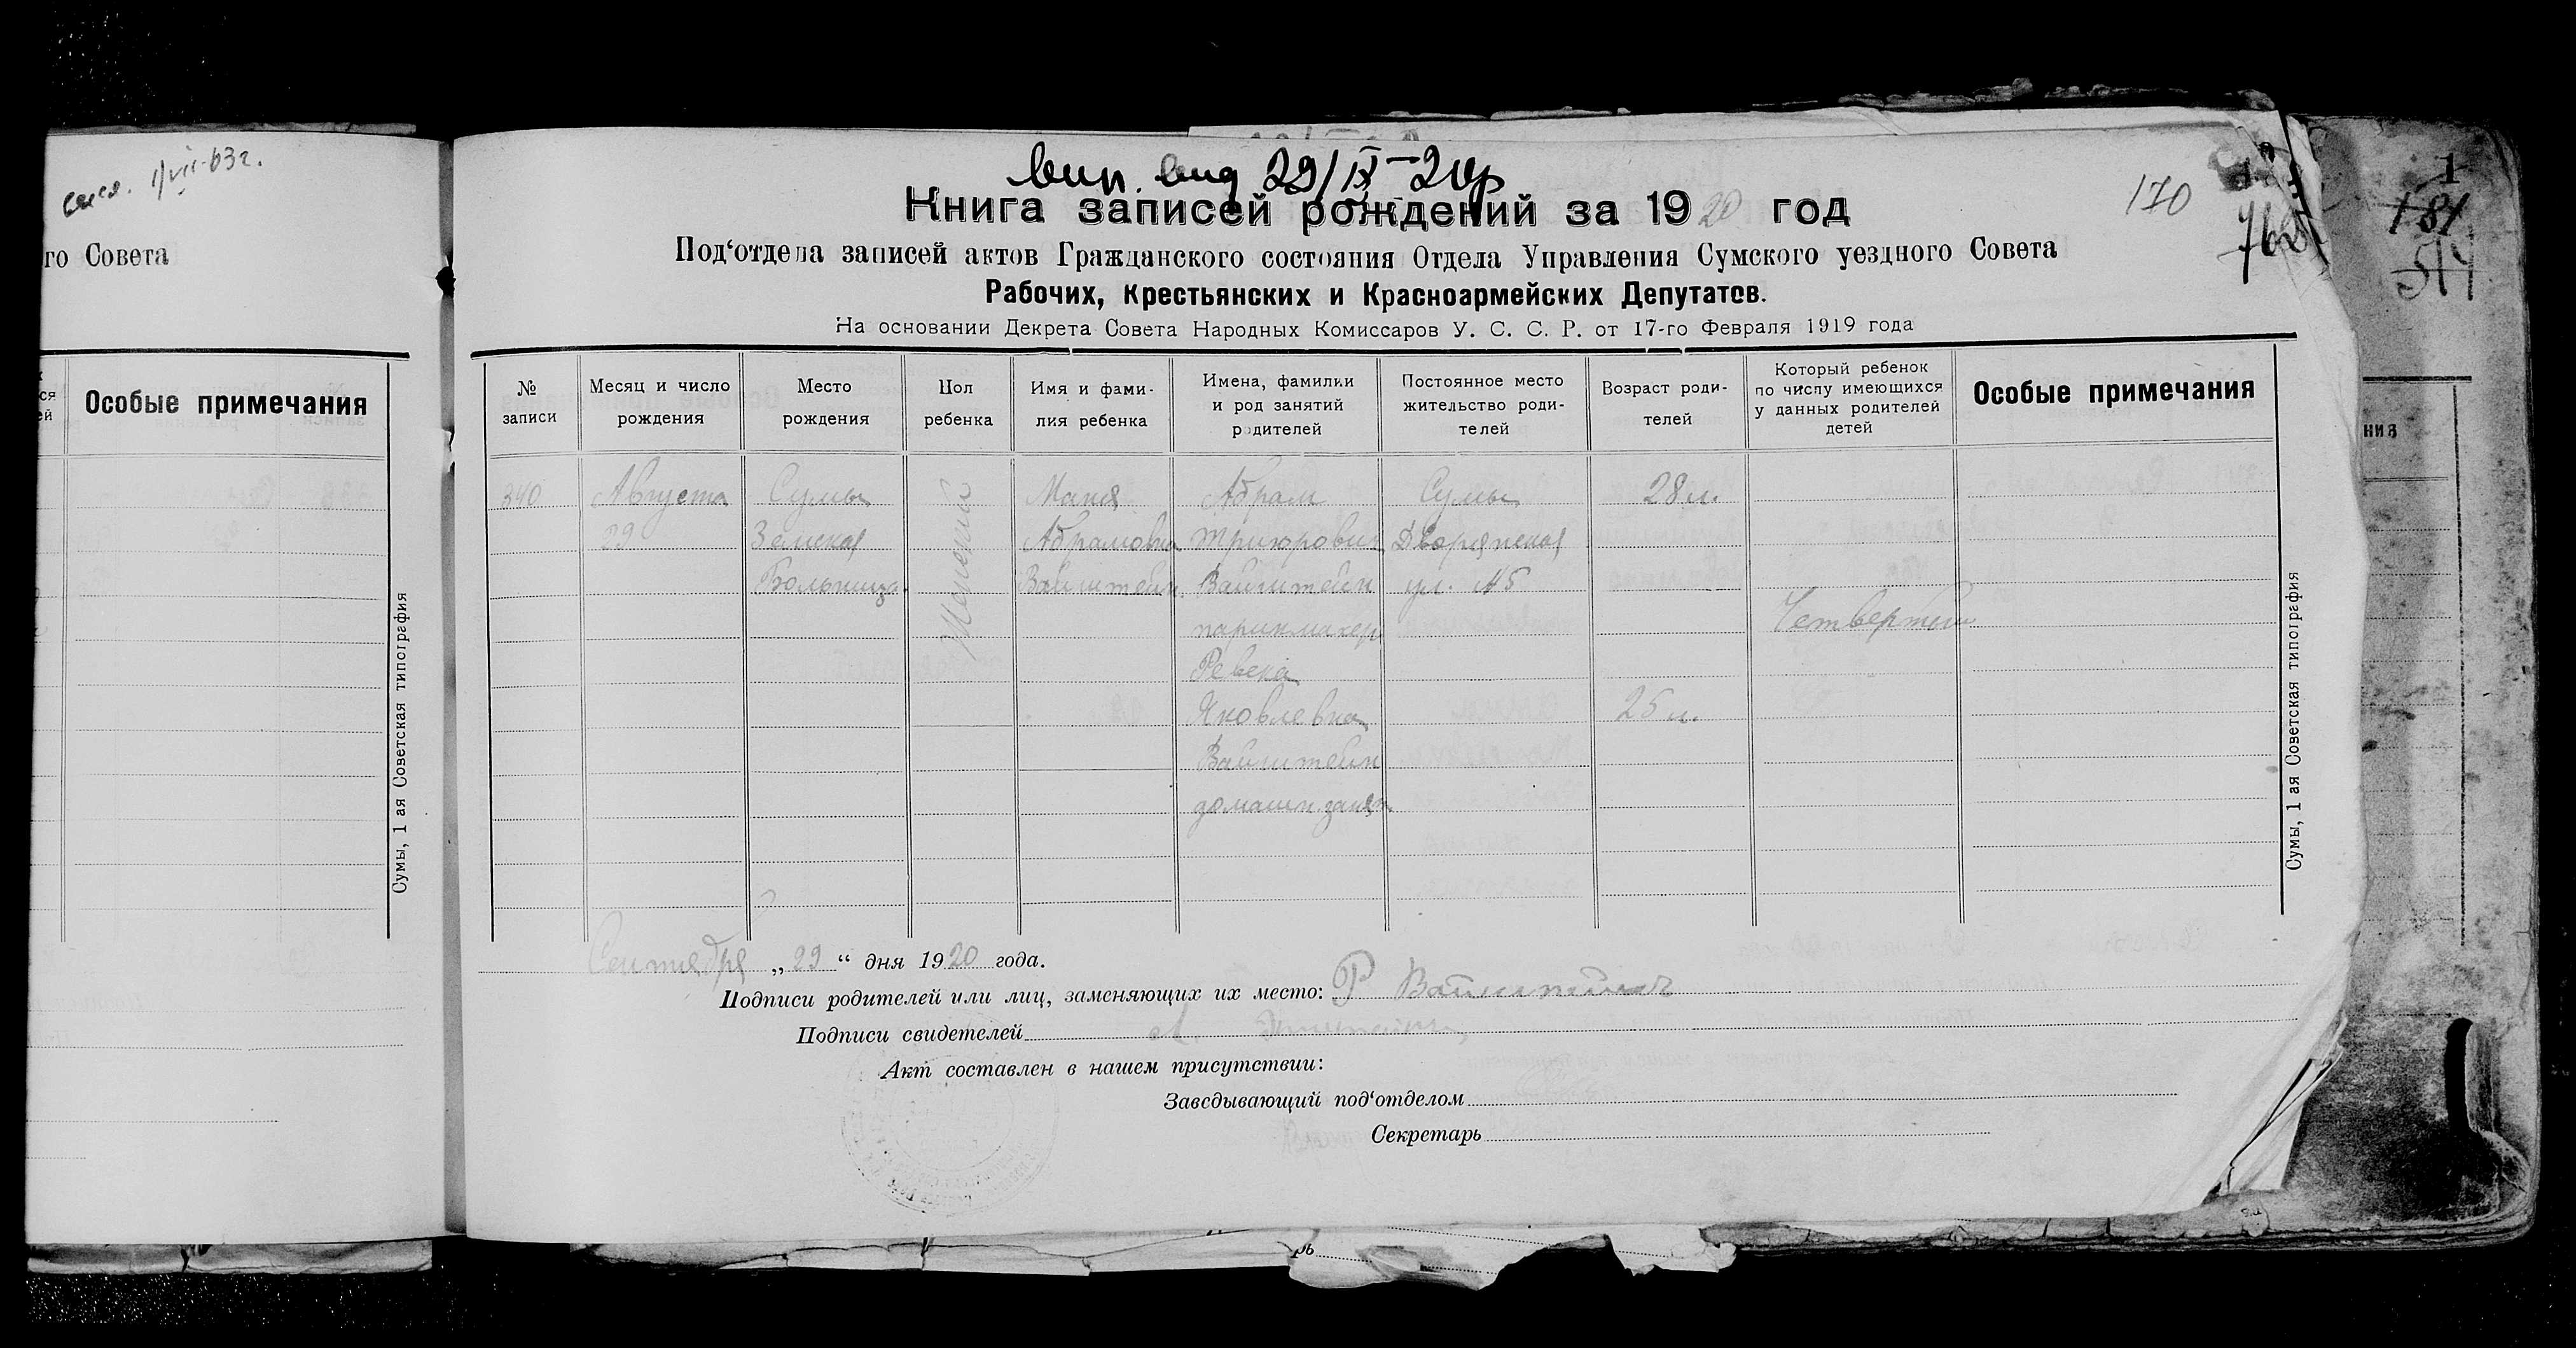 1/VII-63г.
го Совета
Особые примечания
Сумы, 1 ая Советская типография
вип. вид 29/IX-20р
Книга записей рождений за 1920 год
170
762
Под‘отдела записей актов Гражданского состояния Отдела Управления Сумского уездного Совета
Рабочих, Крестьянских и Красноармейских Депутатов.
На основании Декрета Совета Народных Комиссаров У. С. С. Р. от 17-го Февраля 1919 года
№ записи
Месяц и число рождения
Место рождения
Пол ребенка
Имя и фами-
лия ребенка
Имена, фамилии
и род занятий
родителей
Постоянное место
жительство роди-
телей
Возраст роди-
телей
Который ребенок
по числу имеющихся
у данных родителей
детей
Особые примечания
340
Августа
29
Сумы
Земская
Больница
Женский
Маня
Абрамовна
Вайнштейн
Абрам
Вайнштейн
парикмахер
Ревека
Яковлевна
Вайнштейн
домашн. занят.
Сумы
Дворянская
ул. №5
28 л.
25 л.
Четвертый
Сентября „29“ дня 1920 года.
Подписи родителей или лиц, заменяющих их место: Р Вайнштейн
Подписи свидетелей
Акт составлен в нашем присутствии:
Заведывающий под‘отделом
Секретарь
Сумы, 1 ая Советская типография
1
181
514
ния
рь